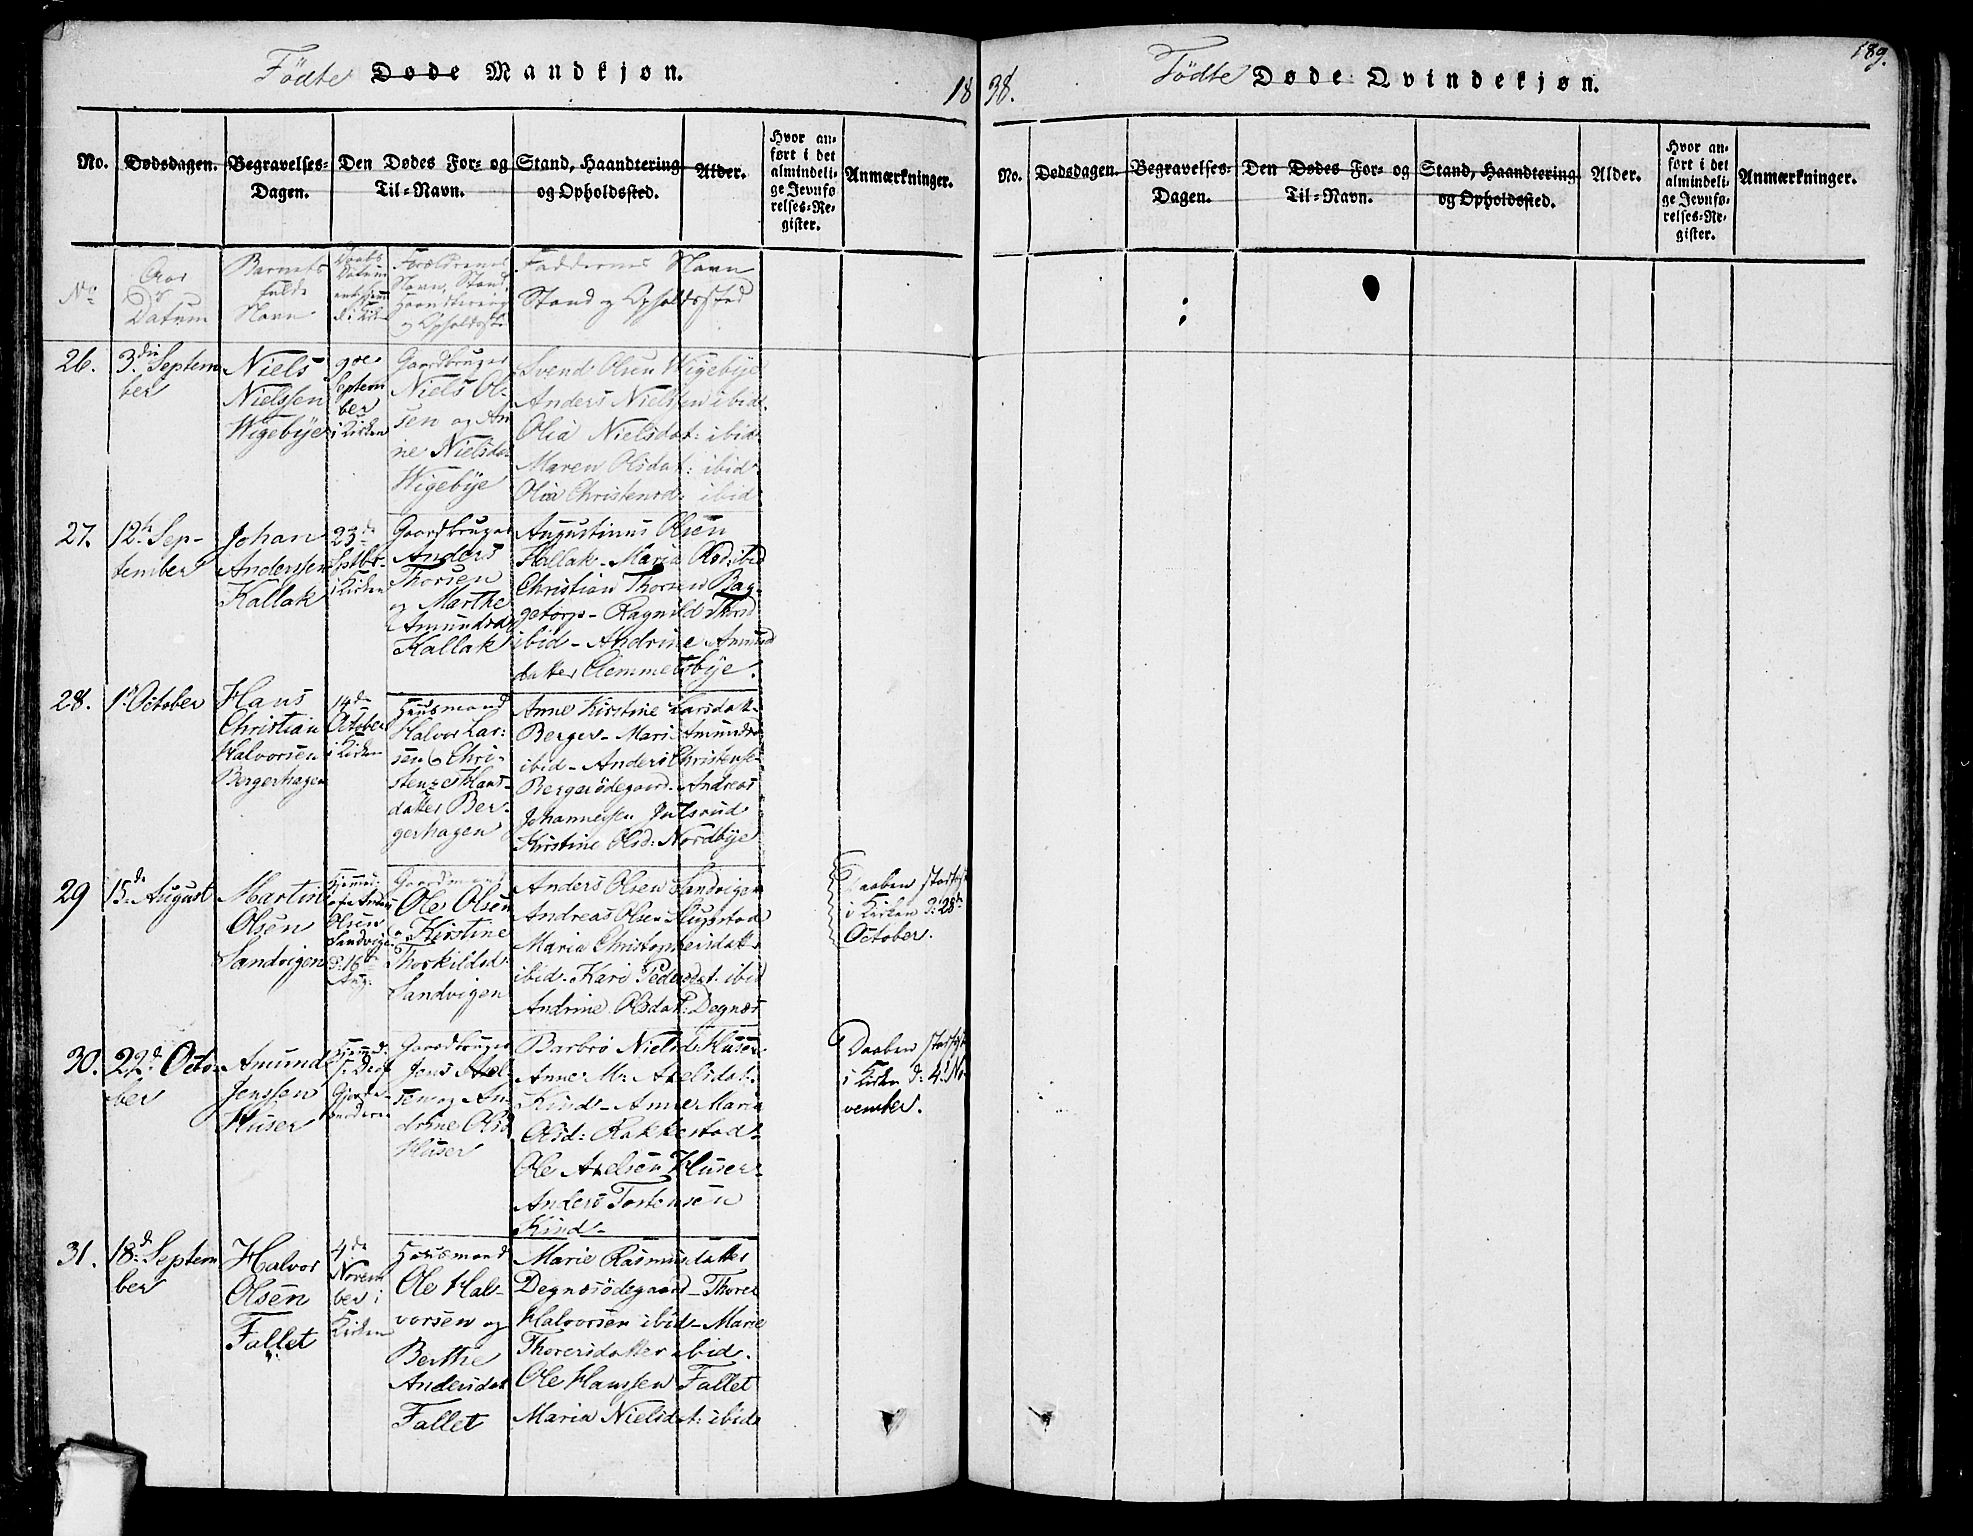 Födte Døde Mandkjøn.
18
No.
Dødsdagen.
Begravelses-
Dagen.
Den Dødes For- og
Til-Navn.
Stand, Haandtering
og Opholdssted.
Alder.
Hvor an-
ført i det
almindeli-
ge Jevnfø
relses-Re-
gister.
Anmærkninger.
No
Aar
&
Datum
Barnets
fulde
Navn
Daabs
Datum
Forældrenes
Navn, Stand,
Haandtering
og Opholdsste
Faddernes Navn
Stand og Opholdssted
26.
3die Septem
ber
Niels
Nielssen
Wigebye
9de
Septem
ber
i Kirken
Gaardbruger
Niels Ol-
sen og An
ne Nielsda
Wigebye
Svend Olsen Wigebye
Anders Nielssen ibid.
Olia Nielsdat: ibid
Maren Olsdat: ibid
Olia Christensd: ibid
27.
12te Sep-
tember
Johan
Anderssen
Kallak
23de
Septbr
i Kirken
Gaardbruger
Anders
Thorsen
og Marthe
Amundsd
Kallak
Augustinus Olsen
Kallak - Maria Olsd: ibid
Christian Thorsen Bag-
getorp - Ragnild Thorsd
ibid - Andrine Amund
datter Clemmetsbye.
28.
1ste October
Hans
Christian
Halvorsen
Bergerhagen
14de
October
i Kirken
Huusmand
Halvor Lar-
sen & Chri-
stenze Hans-
datter Ber-
gerhagen
Anne Kirstine Larsdat-
Berger - Mari Amundsd
ibid - Anders Christense-
Bergerødegaard - Andreas
Johannessen Julsrud
Kirstine Olsd: Nordbye
29
15de August
Martin
Olsen
Sandvigen
Hjemmed:
Olsen
Sandvigen
d: 16de
Aug:
Gaardmand
Ole Olsen
og Kirstine
Thorkildsd
Sandvigen
Anders Olsen Sandvigen
Andreas Olsen Huggstad
Maria Christophersdatt
ibid - Kari Pedersdat: ibid
Andrine Olsdat: Degnæs
Daaben stadfæst
i Kirken d: 28de
October.
30.
22de Octo-
ber
Amund
Jenssen
Huser
Hjemmed:
Gjorde-
moderen
Gaardbruger
Jens Axel-
sen og An-
drine Olsd
Huser
Barbro Nielsd: Huser.
Anne M: Axelsdat:
Kind - Anne Maria
Olsd: Rakkestad -
Ole Axelsen Huser -
Anders Tostensen
Kind -
Daaben stadfæst
i Kirken d: 4de No-
vember.
31.
18de Septem
ber
Halvor
Olsen
Fallet
4de
Novem
ber i
Kirken
Huusmand
Ole Hal-
vorsen og
Berthe
Andersdat
Fallet
Marie Rasmusdatter
Degnæsödegaard - Thorer
Halvorsen ibid - Marie
Thorersdatter ibid.
Ole Hanssen Fallet
Maria Nielsdat: ibid
38.
Födte Døde Qvindekjøn.
189.
No.
Dødsdagen.
Begravelses-
Dagen.
Den Dødes For- og
Til-Navn.
Stand, Haandtering
og Opholdssted.
Alder.
Hvor an-
ført i det
almindeli-
ge Jevnfø-
relses-Re-
gister.
Anmærkninger.